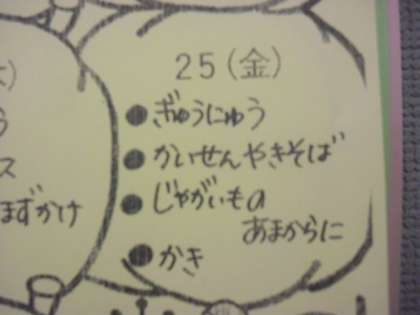 25(金)
●ぎゅうにゅう
●かいせんやきそば
●じゃがいもの
あまからに
●かき
う
ス
まずかけ